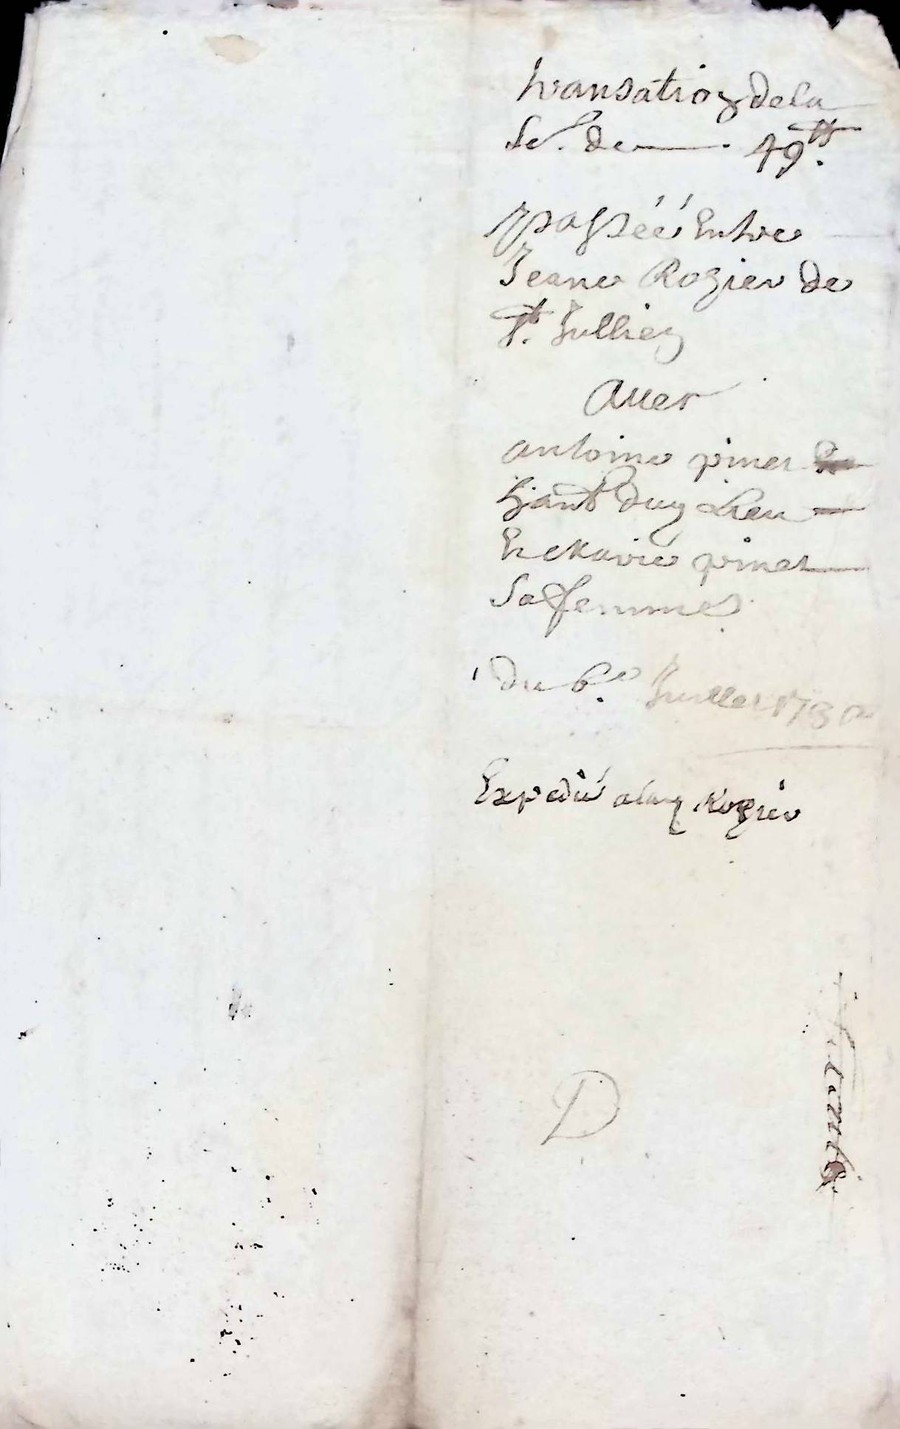 transation de la
Se. de 49 tt.
passéé Entre
Jeane Rozier de
St. Jullien
Auec
antoine pinet
habitant duy Lieu
Et Marie pinet
Sa femme
du 6e. Juillet 1730
Expedié alad Rozier
D